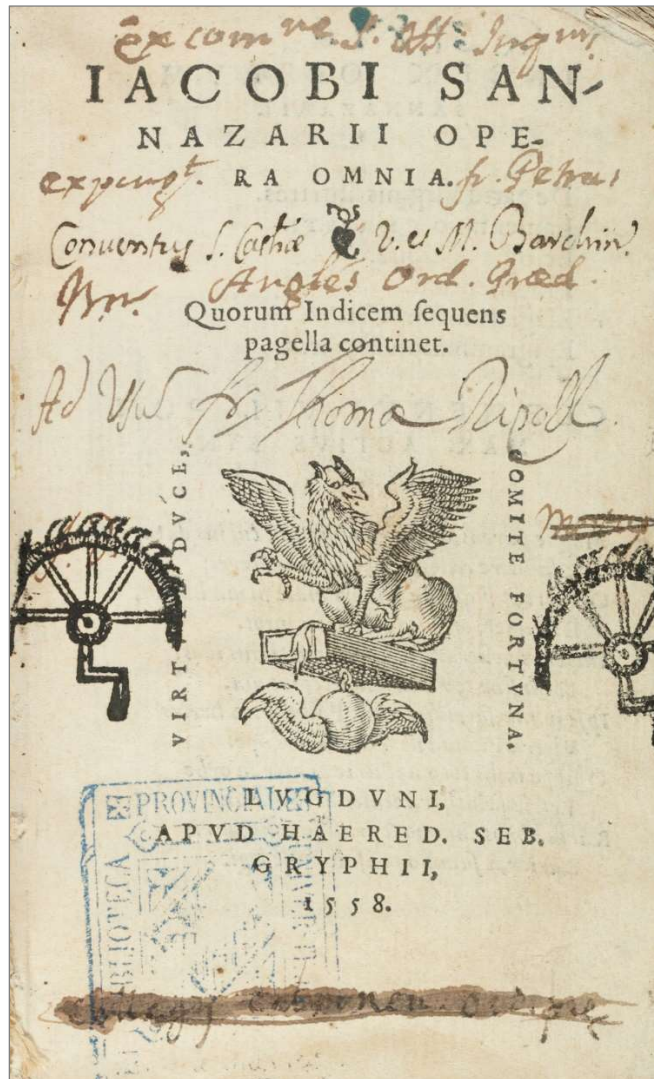 ex com.ne S. Off. Inquis.
IACOBI SAN-
NAZARII OPE-
expurgt. RA OMNIA. fr. Petrus
Conventus S. Cath.æ V. et M. Barchin.
Angles Ord. Præd.
Quorum Indicem ſequens
pagella continet.
Ad Usũ fr Thomæ Ripoll
VIRTUTE DVCE,
COMITE FORTVNA.
LVGDVNI,
APVD HAERED. SEB.
GRYPHII,
1558.
BIBLIOTECA PROVINCIAL